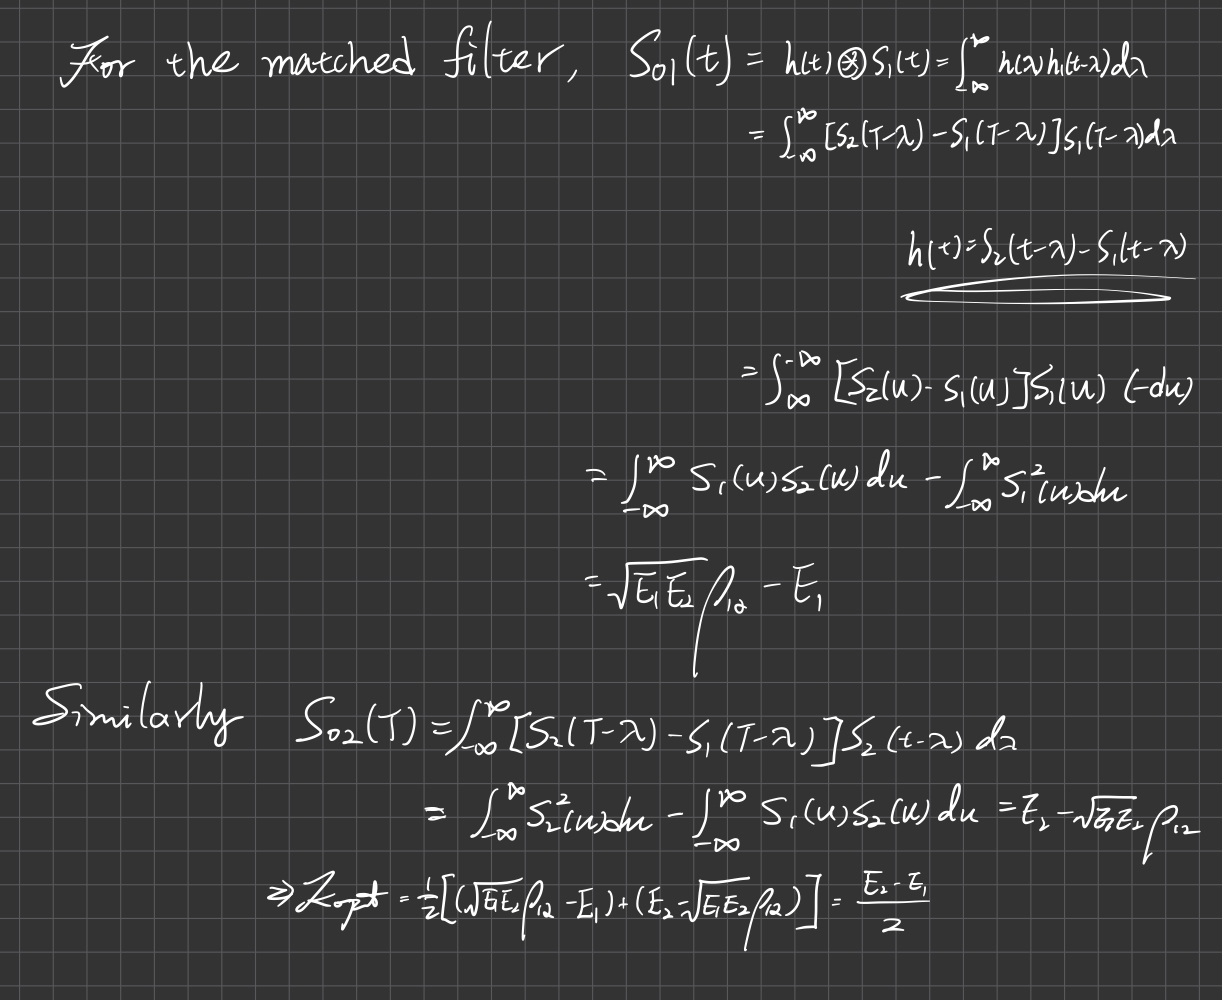 For the matched filter, S₀₁(t) = h(t) ⊛ S₁(t) = ∫_{-∞}^{∞} h(λ) h₁(t-λ) dλ
= ∫_{-∞}^{∞} [S₂(T-λ) - S₁(T-λ)] S₁(T-λ) dλ
h(t) = S₂(t-λ) - S₁(t-λ)
= ∫_{∞}^{-∞} [S₂(u) - S₁(u)] S₁(u) (-du)
= ∫_{-∞}^{∞} S₁(u) S₂(u) du - ∫_{-∞}^{∞} S₁²(u) du
= √(E₁E₂) ρ₁₂ - E₁
Similarly S₀₂(T) = ∫_{-∞}^{∞} [S₂(T-λ) - S₁(T-λ)] S₂(t-λ) dλ
= ∫_{-∞}^{∞} S₂²(u) du - ∫_{-∞}^{∞} S₁(u) S₂(u) du = E₂ - √(E₁E₂) ρ₁₂
⇒ K_opt = 1/2 [(√(E₁E₂) ρ₁₂ - E₁) + (E₂ - √(E₁E₂) ρ₁₂)] = (E₂ - E₁)/2